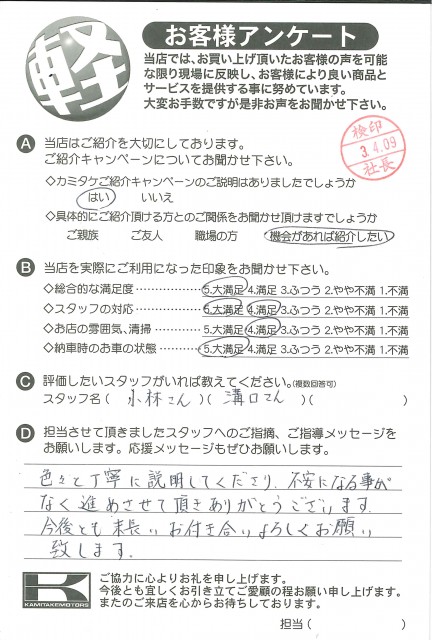 軽
お客様アンケート
当店では、お買い上げ頂いたお客様の声を可能
な限り現場に反映し、お客様により良い商品と
サービスを提供する事に努めています。
大変お手数ですが是非お声をお聞かせ下さい。
検印
3.4.09
社長
A 当店はご紹介を大切にしております。
ご紹介キャンペーンについてお聞かせ下さい。
◇カミタケご紹介キャンペーンのご説明はありましたでしょうか
はい いいえ
◇具体的にご紹介頂ける方とのご関係をお聞かせ頂けますでしょうか
ご親族 ご友人 職場の方 機会があれば紹介したい
B 当店を実際にご利用になった印象をお聞かせ下さい。
◇総合的な満足度 5.大満足 4.満足 3.ふつう 2.やや不満 1.不満
◇スタッフの対応 5.大満足 4.満足 3.ふつう 2.やや不満 1.不満
◇お店の雰囲気、清掃 5.大満足 4.満足 3.ふつう 2.やや不満 1.不満
◇納車時のお車の状態 5.大満足 4.満足 3.ふつう 2.やや不満 1.不満
C 評価したいスタッフがいれば教えてください。(複数回答可)
スタッフ名 ( 小林さん ) ( 溝口さん ) ( )
D 担当させて頂きましたスタッフへのご指摘、ご指導メッセージを
お願いします。応援メッセージもぜひお願いします。
色々と丁寧に説明してくださり、不安になる事が
なく進めさせて頂きありがとうございます。
今後とも末長いお付き合いよろしくお願い
致します。
K
KAMITAKEMOTORS
ご協力に心よりお礼を申し上げます。
今後とも宜しくお引き立てご愛顧の程お願い申し上げます。
またのご来店を心からお待ちしております。
担当 ( )